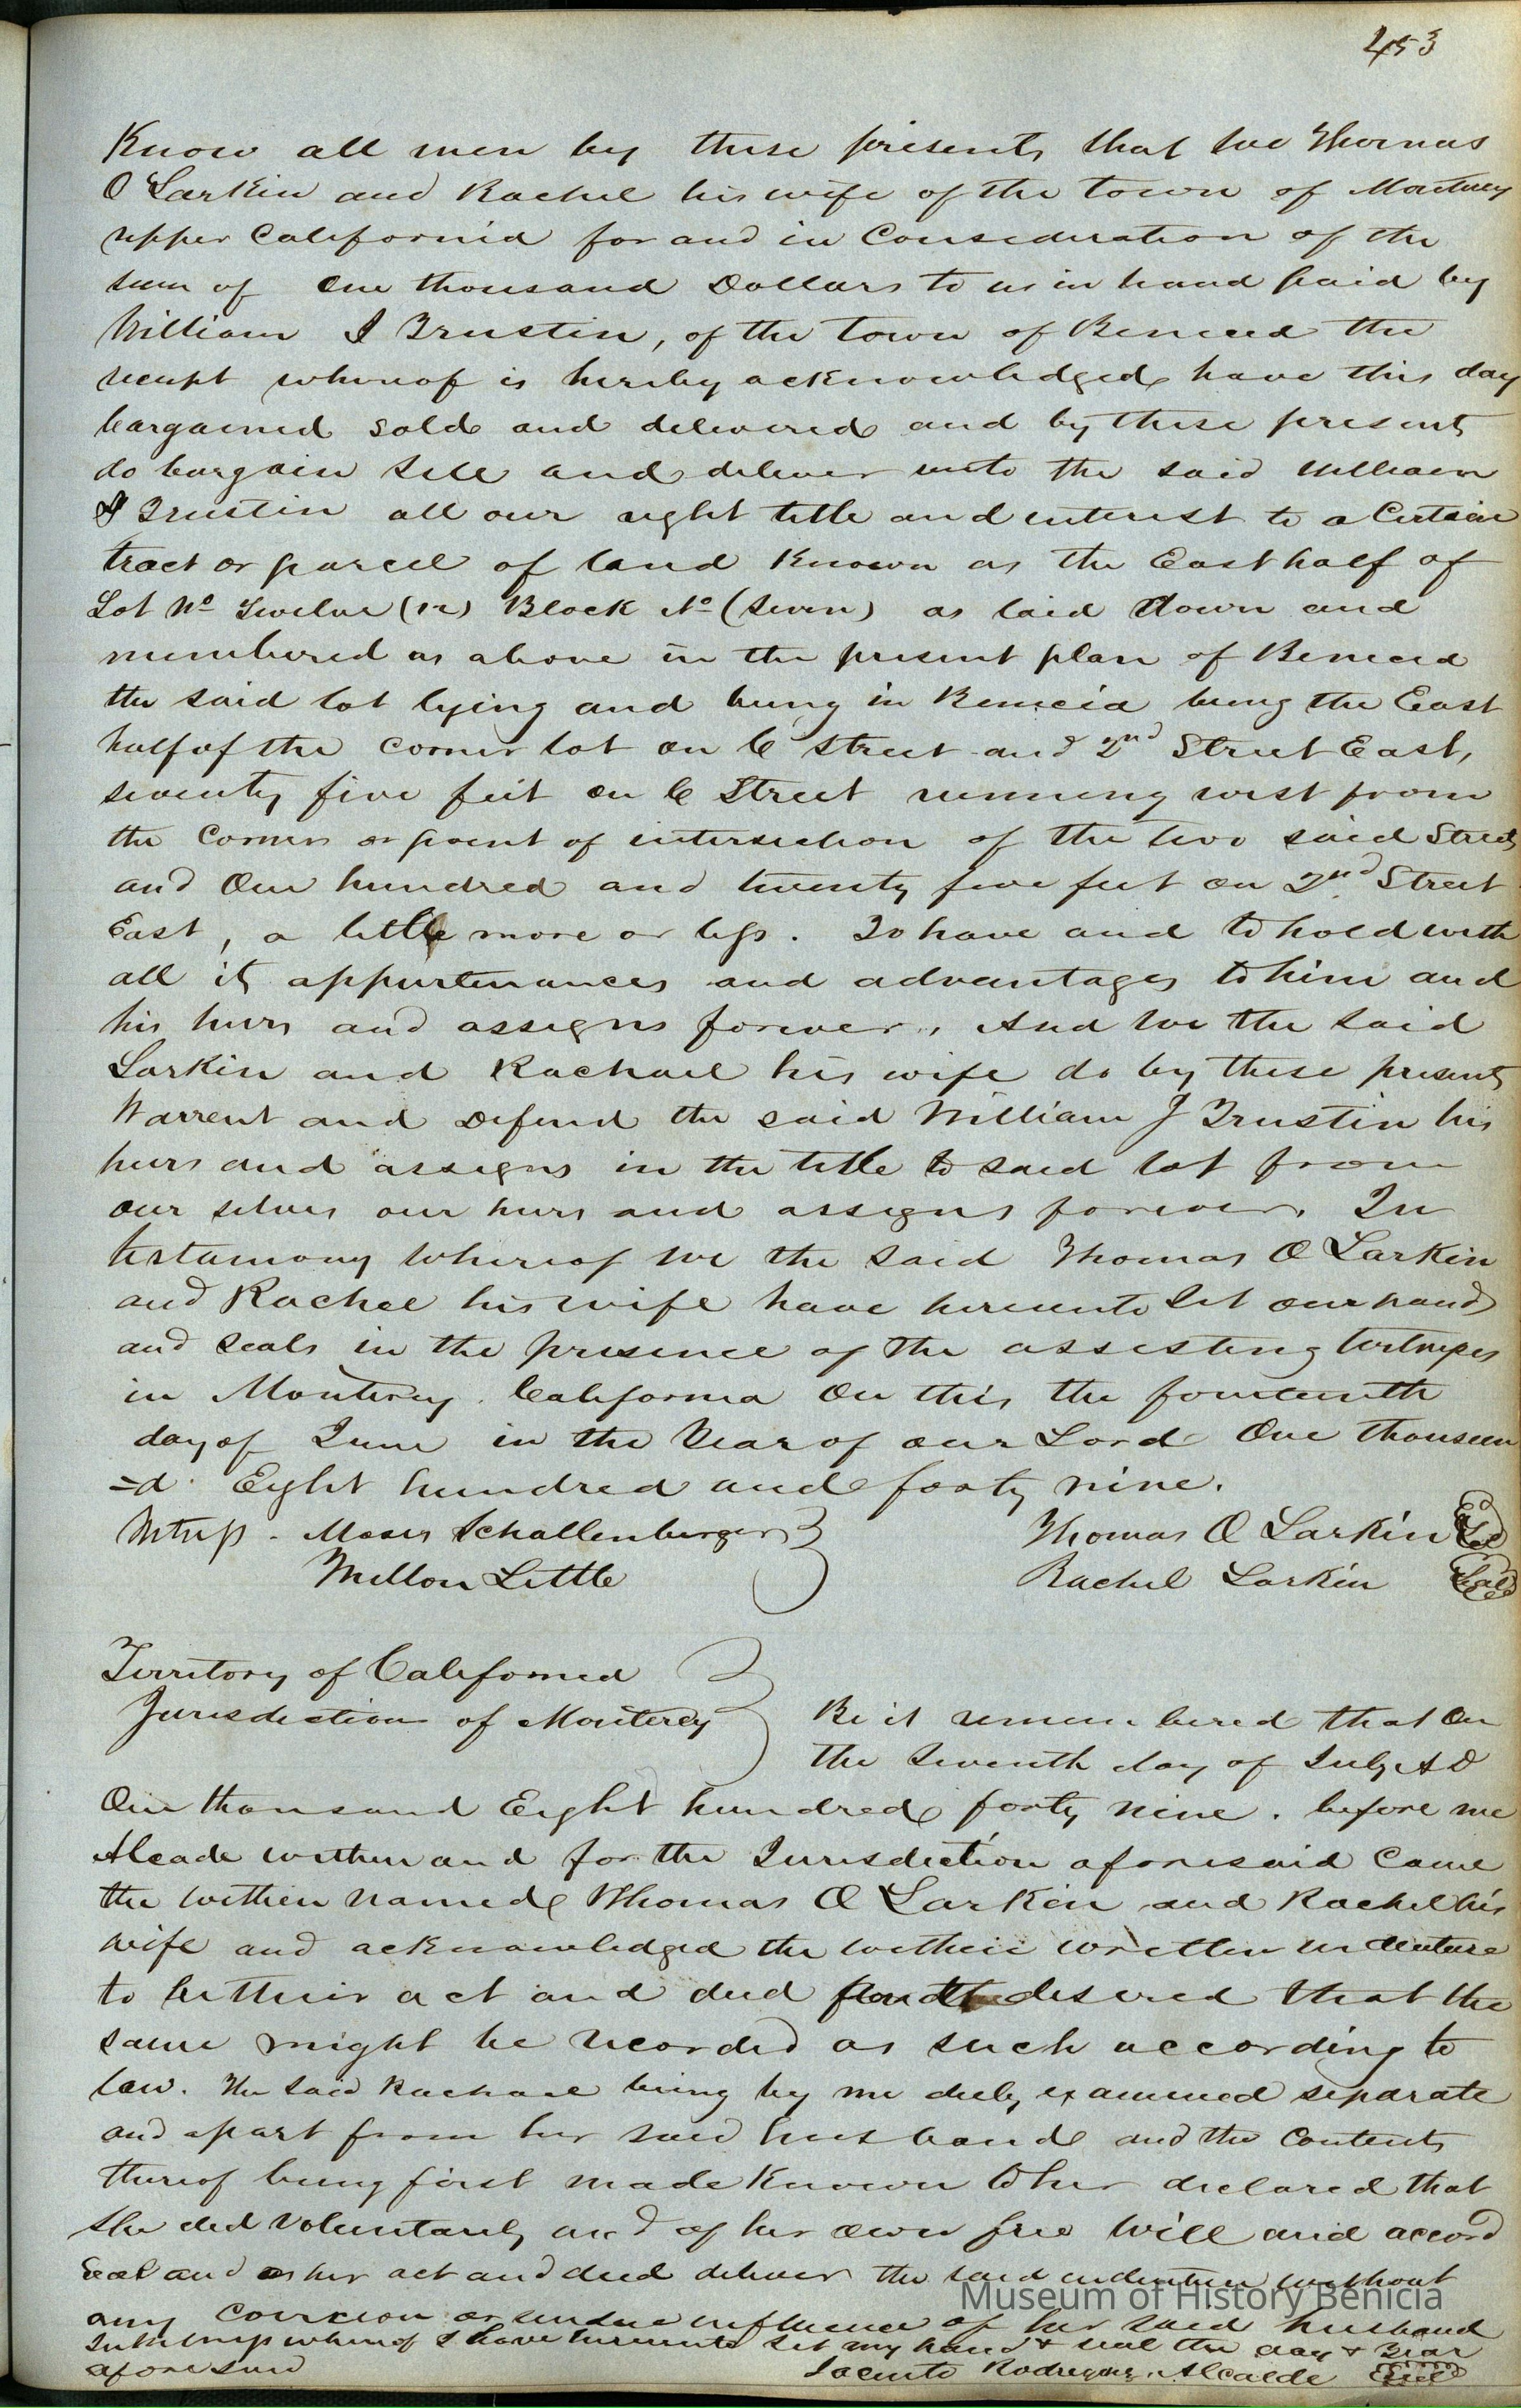 453
Know all men by these presents that we Thomas
O Larkin and Rachel his wife of the town of Monterey
upper California for and in Consideration of the
sum of One thousand Dollars to us in hand paid by
William J Trustin, of the town of Benicia the
receipt whereof is hereby acknowledged have this day
bargained sold and delivered and by these presents
do bargain sell and deliver unto the said William
J Trustin all our right title and interest to a Certain
tract or parcel of land Known as the East half of
Lot No Twelve (12) Block No (Seven) as laid down and
numbered as above in the present plan of Benicia
the said lot lying and being in Benicia being the East
half of the corner lot on C Street and 2nd Street East,
seventy five feet on C Street running west from
the Corner or point of intersection of the two said Streets
and One hundred and twenty five feet on 2nd Street
East, a little more or less. To have and to hold with
all its appurtenances and advantages to him and
his heirs and assigns forever, And we the said
Larkin and Rachael his wife do by these presents
Warrent and Defend the said William J Trustin his
heirs and assigns in the title to said lot from
our selves our heirs and assigns forever. In
testamony whereof we the said Thomas O Larkin
and Rachel his wife have hereunto Set our hands
and Seals in the presence of the assisting witnesses
in Monterey California On this the fourteenth
day of June in the Year of our Lord One thousan
=d Eight hundred and forty nine.
Witness - Moses Schallenberger
Thomas O Larkin Seal
Millon Little
Rachel Larkin Seal
Territory of California
Jurisdiction of Monterey
Be it remembered that On
the Seventh day of July AD
One thousand Eight hundred forty nine. before me
Alcade within and for the Jurisdiction aforesaid Came
the within named Thomas O Larkin and Rachel his
wife and acknowledged the within written indenture
to be their act and deed desired that the
same might be recorded as such according to
law. The said Rachael being by me duly examined separate
and apart from her said husband and the Contents
thereof being first made Known to her declared that
She did Voluntarily and of her own free Will and accord
Seal and as her act and deed deliver the said indenture without
any Coercion or undue influence of her said husband
In Witness whereof I have hereunto Set my hand & seal the day & Year
aforesaid
Jacinto Rodregues, Alcalde Seal
Museum of History Benicia